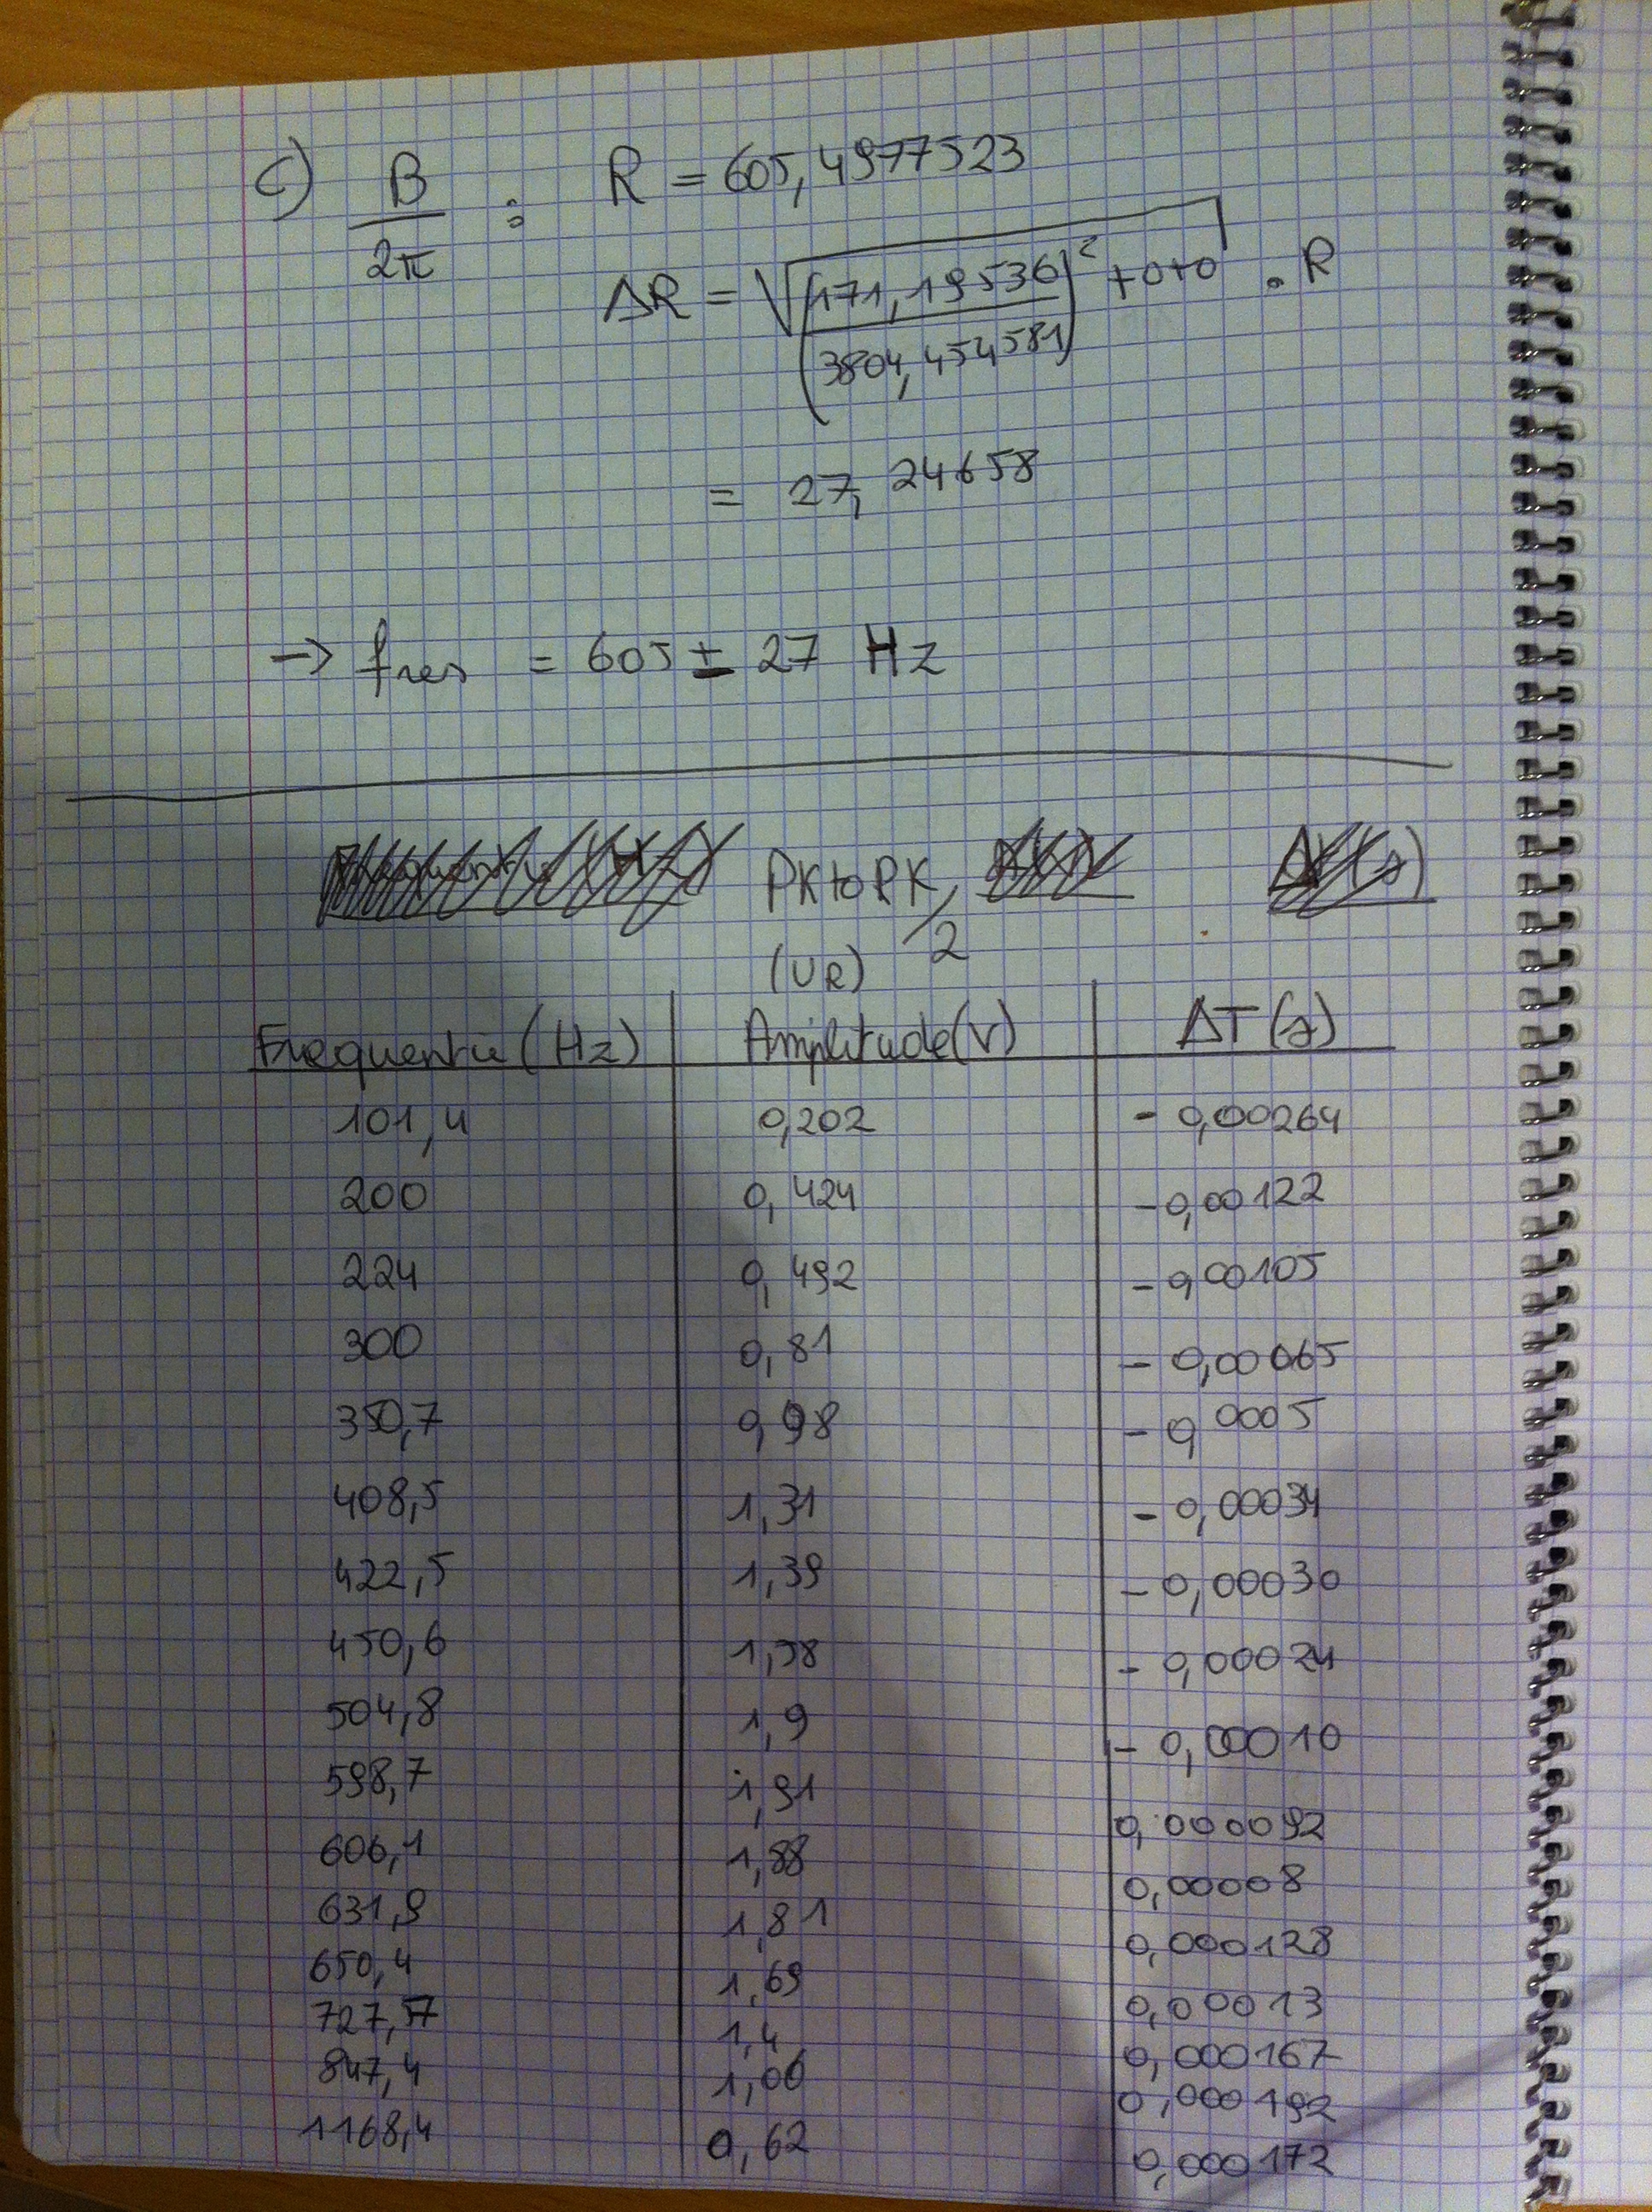 c) B/2π : R = 605,4977523
ΔR = √((171,19536/3804,454581)² + 0+0) . R
= 27,24658
→ fres = 605 ± 27 Hz
PK to PK/2
(UR)
Frequentie (Hz) Amplitude(V) ΔT (s)
101,4 0,202 - 0,00264
200 0,424 - 0,00122
224 0,492 - 0,00105
300 0,81 - 0,00065
350,7 0,98 - 0,0005
408,5 1,31 - 0,00034
422,5 1,39 - 0,00030
450,6 1,58 - 0,00024
504,8 1,9 - 0,00010
598,7 1,91 0,000092
606,1 1,88 0,00008
631,9 1,81 0,000128
650,4 1,69 0,00013
727,57 1,4 0,000167
847,4 1,06 0,000192
1168,4 0,62 0,000172